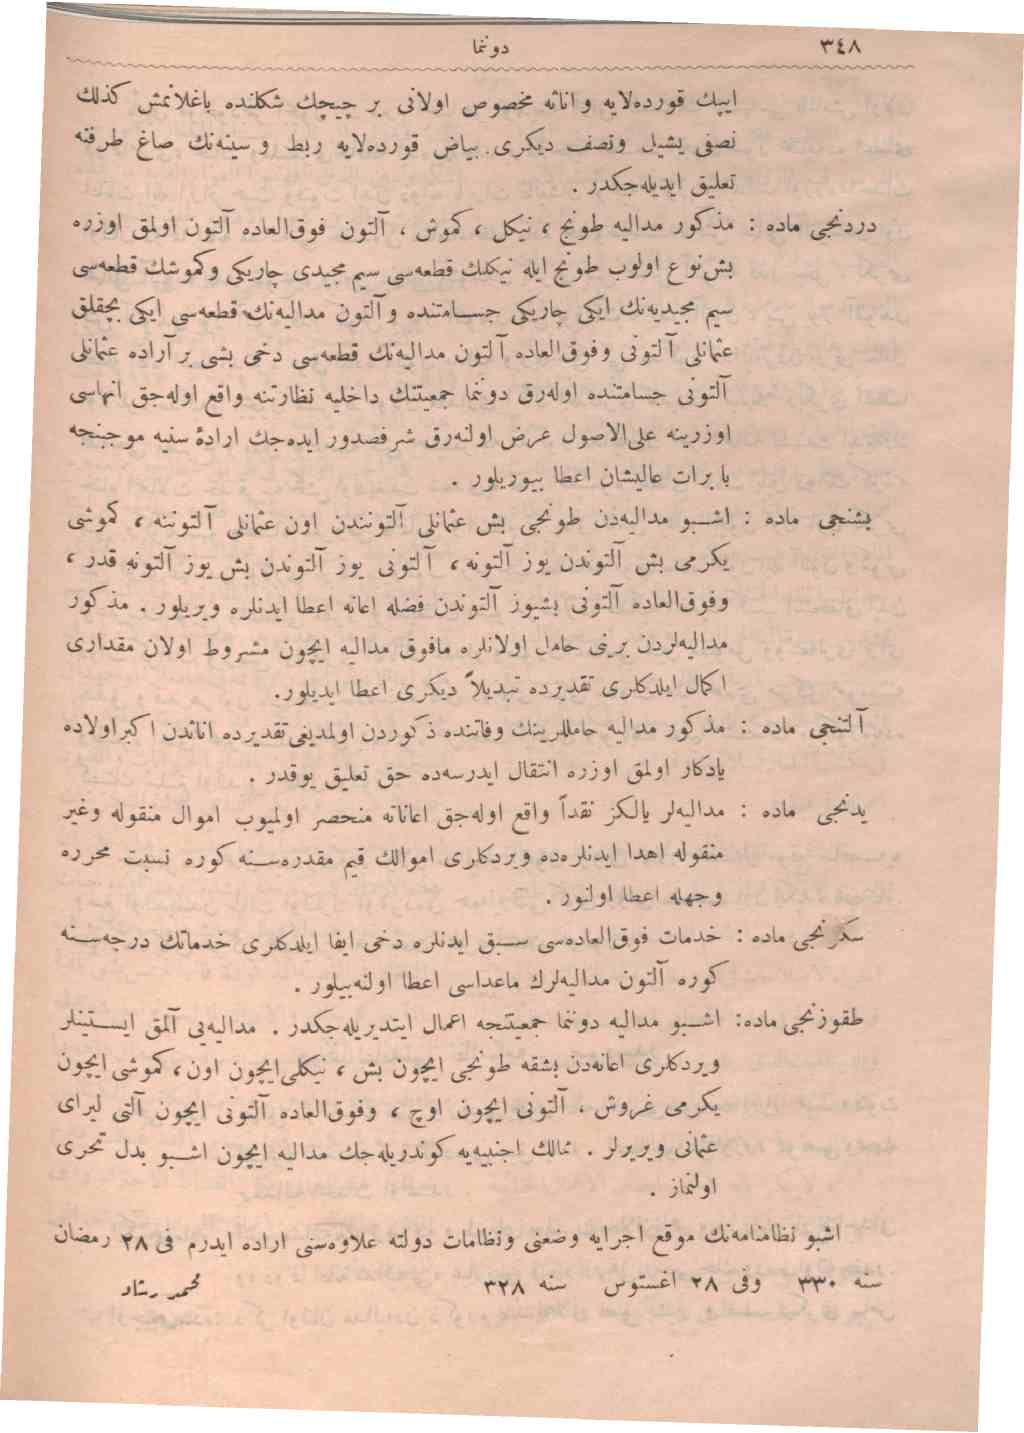 ٣٤٨
دوننما
ايپك قورده‌لايه و اناثه مخصوص اولانی بر چيچك شكلنده باغلانمش كذلك
نصفی يشيل ونصف ديكری بياض قورده‌لايه ربط و سينه‌نك صاغ طرفنه
تعليق ايديله‌جكدر .
دردنجی ماده : مذكور مداليه طونج ، نيكل ، كموش ، آلتون فوق‌العاده آلتون اولمق اوزره
بش‌نوع اولوب طونج ايله نيكلك قطعه‌سی سيم مجيدی چاريكی وكموشك قطعه‌سی
سيم مجيديه‌نك ايكی چاريكی جسامتنده و آلتون مداليه‌نك قطعه‌سی ايكی بچقلق
عثمانلی آلتونی وفوق‌العاده آلتون مداليه‌نك قطعه‌سی دخی بشی بر آراده عثمانلی
آلتونی جسامتنده اوله‌رق دوننما جمعيتنك داخليه نظارتنه واقع اوله‌جق انهاسی
اوزرينه علی‌الاصول عرض اولنه‌رق شرفصدور ايده‌جك ارادۀ سنيه موجبنجه
با برات عاليشان اعطا بيوريلور .
بشنجی ماده : اشبو مداليه‌دن طونجی بش عثمانلی آلتونندن اون عثمانلی آلتوننه ، كموشی
يكرمی بش آلتوندن يوز آلتونه ، آلتونی يوز آلتوندن بش يوز آلتونه قدر ،
وفوق‌العاده آلتونی بشيوز آلتوندن فضله اعانه اعطا ايدنلره ويريلور . مذكور
مداليه‌لردن برينی حامل اولانلره مافوق مداليه ايچون مشروط اولان مقداری
اكمال ايلدكلری تقديرده تبديلاً ديكری اعطا ايديلور.
آلتنجی ماده : مذكور مداليه حامللرينك وفاتنده ذكوردن اولمديغی تقديرده اناثدن اكبر اولاده
يادكار اولمق اوزره انتقال ايدرسه‌ده حق تعليق يوقدر .
يدنجی ماده : مداليه‌لر يالكز نقداً واقع اوله‌جق اعاناته منحصر اولميوب اموال منقوله وغير
منقوله اهدا ايدنلره‌ده ويردكلری اموالك قيم مقدره‌سنه كوره نسبت محرره
وجهله اعطا اولنور .
سكزنجی ماده : خدمات فوق‌العاده‌سی سبق ايدنلره دخی ايفا ايلدكلری خدماتك درجه‌سنه
كوره آلتون مداليه‌لرك ماعداسی اعطا اولنه‌بيلور .
طقوزنجی ماده: اشبو مداليه دوننما جمعيتنجه اعمال ايتديريله‌جكدر . مداليه‌يی آلمق ايستينلر
ويردكلری اعانه‌دن بشقه طونجی ايچون بش ، نيكلی‌ايچون اون ، كموشی ايچون
يكرمی غروش ، آلتونی ايچون اوچ ، وفوق‌العاده آلتونی ايچون آلتی ليرای
عثمانی ويريرلر . ممالك اجنبيه‌يه كوندريله‌جك مداليه ايچون اشبو بدل تحری
اولنماز .
اشبو نظامنامه‌نك موقع اجرايه وضعنی ونظامات دولته علاوه‌سنی اراده ايدرم فی ٢٨ رمضان
سنه ٣٣٠ وفی ٢٨ اغستوس سنه ٣٢٨
محمد رشاد